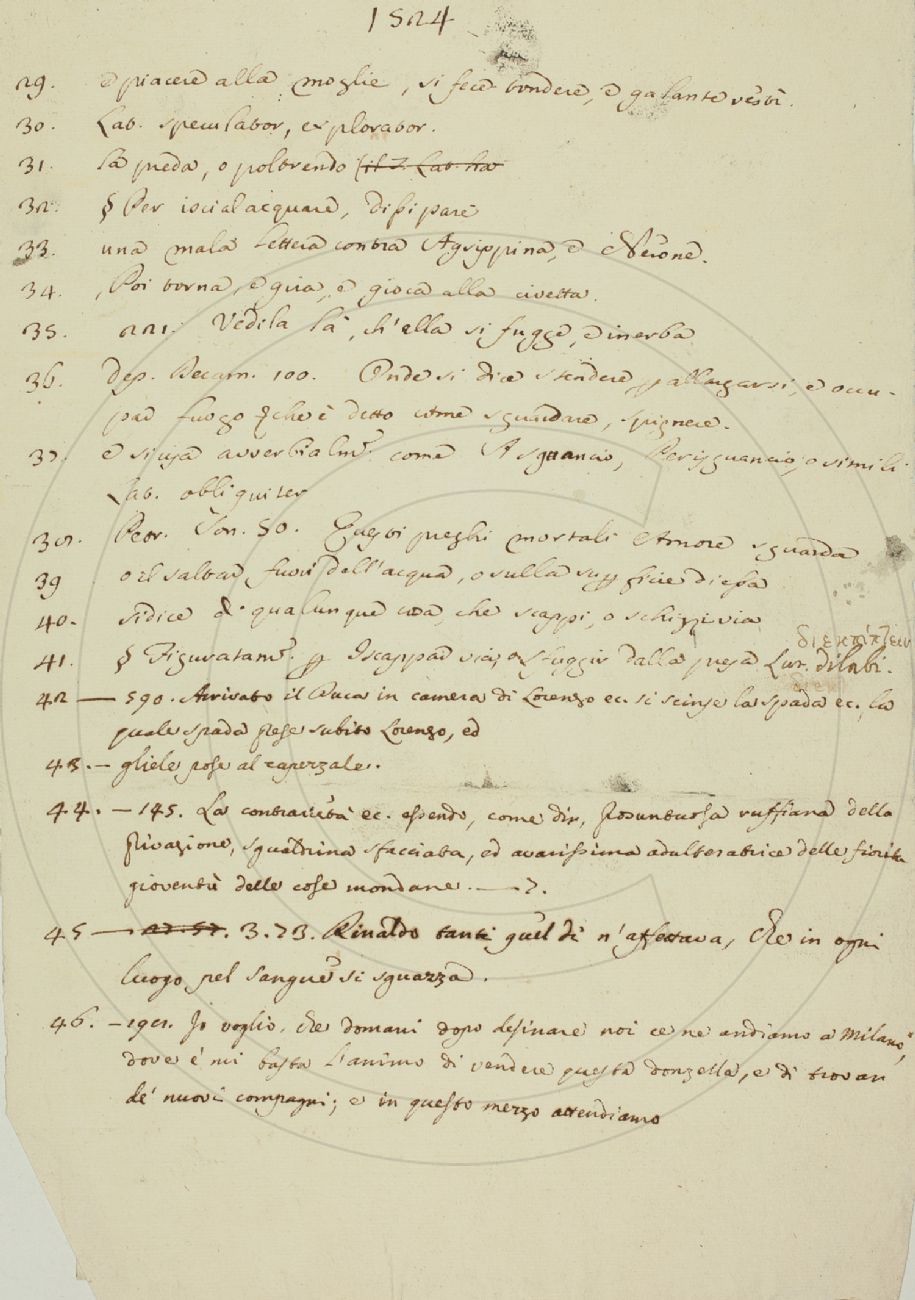 1524
29. e piacere alla moglie, si fece tondere, e galante vestì.
30. Lat. speculator, explorator.
31. la preda, o poltrendo (il Z. Lat. ha
32. § Per iscialacquare, dissipare
33. una mala lettera contra Agrippina, e Nerone.
34. , Poi torna, e gira, e gioca alla civetta.
35. 221. Vedila là, ch'ella si fugge, e inerba
36. Dep. Decam. 100. Onde si dice stendere p allargarsi, e occu-
par luogo che è detto come sguardare, spignere.
37. e si usa avverbialm.e come A sguancio, Per isguancio, o simili
Lat. obliquiter
38. Petr. Son. 50. Questi preghi mortali Amore sguarda
39 o il saltar fuori dell'acqua, o sulla superficie di essa
40. si dice di qualunque cosa, che scappi, o schizzi via
διεκπίπλειν
41. § Figuratam.e p Iscappar via, o sfuggir dalla presa Lat. dilabi.
42 — 590. Arrivato il Duca in camera di Lorenzo ec. si scinse la spada ec., la
quale spada prese subito Lorenzo, ed
43. — gliele pose al capezzale.
44. — 145. La contrarietà ec. essendo, come dir, prosuntuosa ruffiana della
privazione, squaldrina sfacciata, ed avarissima adulteratrice delle fiorite
gioventù delle cose mondane. — 7.
45 — 27. 57. 3. 73. Rinaldo tanti quel dì n'affettava, Che in ogni
luogo pel sangue si sguazza.
46. — 198. Io voglio, che domani dopo desinare noi ce ne andiamo a Milano,
dove e' mi basta l'animo di vendere questa donzella, e di trovar
de' nuovi compagni; e in questo mezzo attendiamo